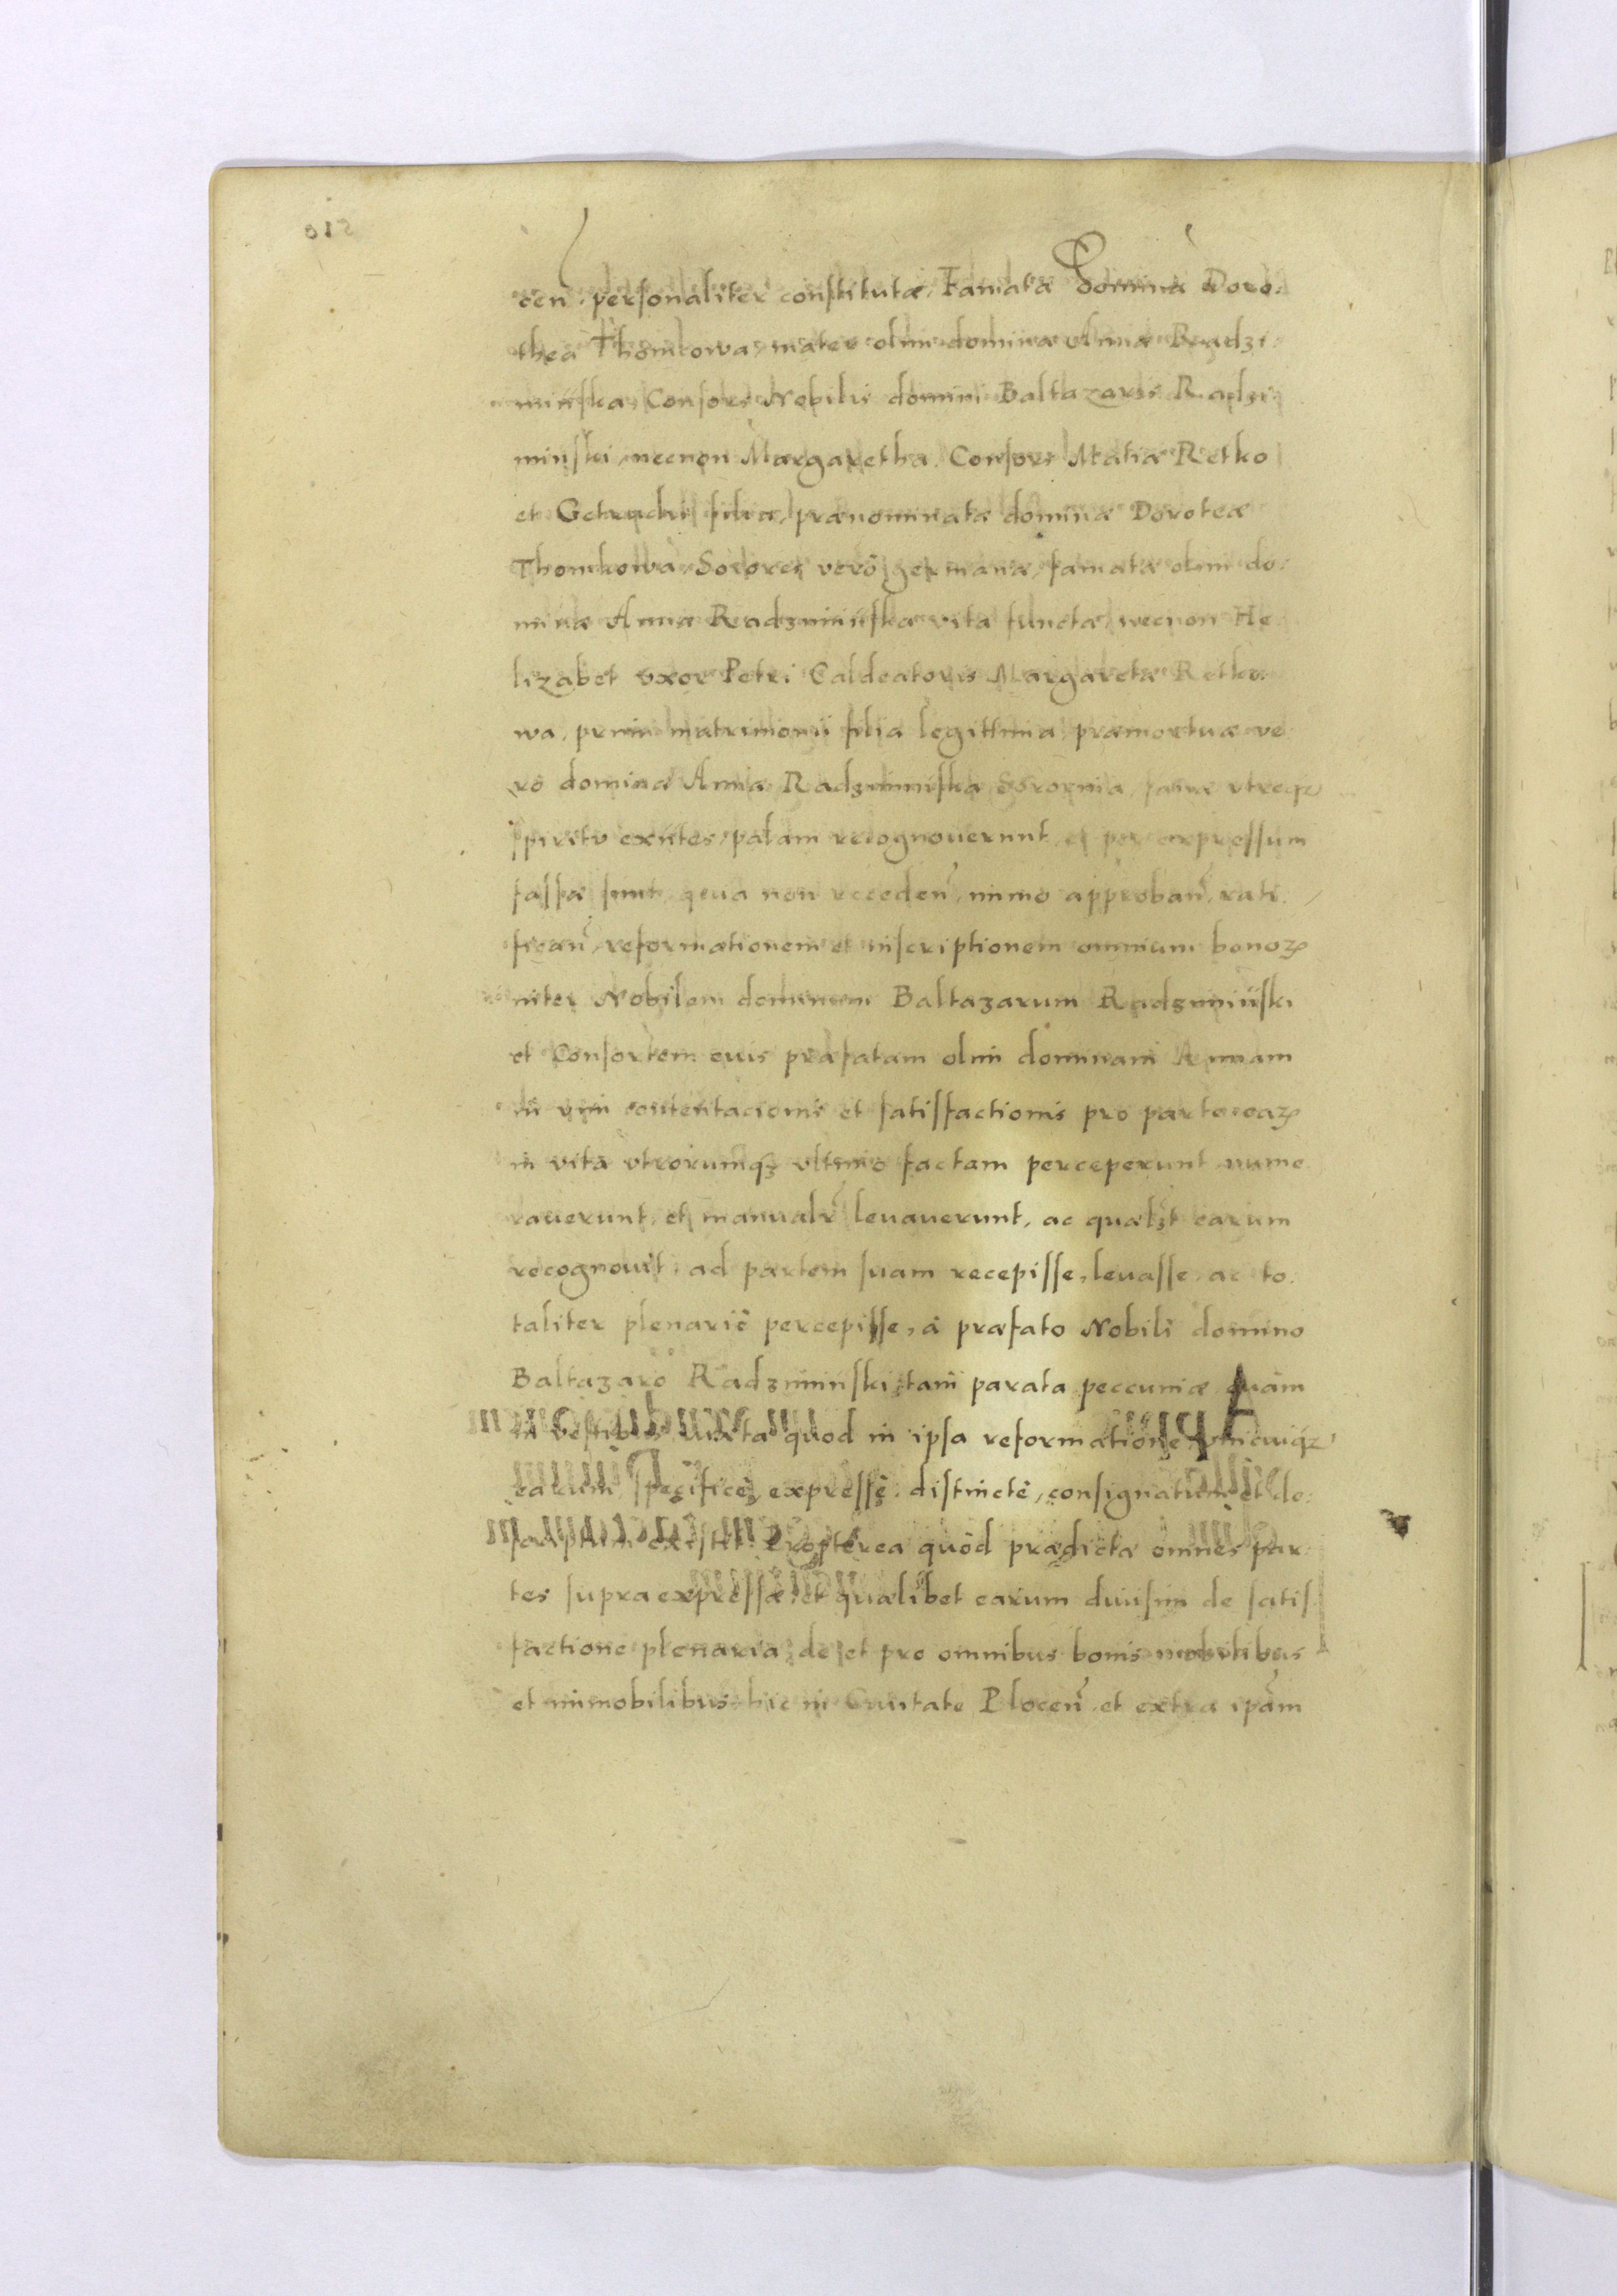 cen̄. personaliter constitutæ, Famata Domina Doro-
thea Thomkowa, mater olim dominæ Annæ Radzi-
minska, Consors Nobilis domini Baltazaris Radzi-
minski, necnon Margaretha Consors Matiæ Retko
et filia, prænominatæ dominæ Doroteæ
Thomkowa, Sorores verò germanæ, famatæ olim do-
minæ Annæ Radzminska vita functæ, necnon He-
lizabet vxor Petri Caldeatoris Margaretæ Retko-
wa, primi matrimonii filia legittima, præmortuæ ve-
rò dominæ Annæ Radzminska Sorornia, sanæ vtroqz
spiritu exn̄tes, palam recognouerunt, et per expressum
fassæ sunt, non recceden̄, immo approban̄, rati-
fican̄, reformationem et inscriptionem omnium bonoꝝ
inter Nobilem dominum Baltazarum Radzminski
et Consortem euis præfatam olim dominam Annam
in vim contentacionis et satisfactionis pro parte eaꝝ
in vita vtrorumqꝫ vltimò factam perceperunt, nume-
rauerunt, et manualr̄ leuauerunt, ac quælꝫt earum
recognouit, ad partem suam recepisse, leuasse, ac to-
taliter plenariè percepisse, à præfato Nobili domino
Baltazaro Radzminski, tam parata peccuniæ quàm
in vestibus iuxta quod in ipsa reformatione vnicuiqꝫ
earum specificè, expressè, distinctè, consignatum et de-
scriptum existit. Propterea quòd prædictæ omnes par-
tes supra expressæ, et quælibet earum diuisim de satis-
factione plenaria, de et pro omnibus bonis mobilibus
et immobilibus hic in Ciuitate Plocen̄, et extra ipām